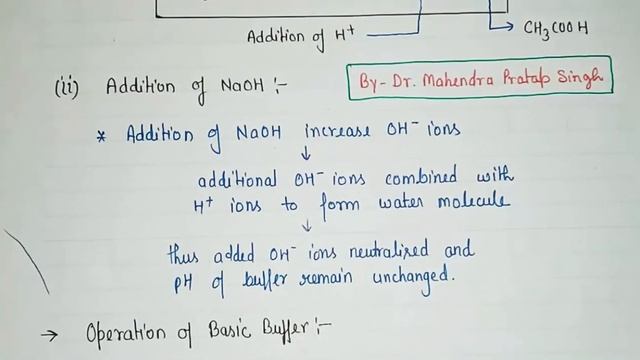 Addition of H⁺
CH₃COOH
(ii) Addition of NaOH :-
By- Dr. Mahendra Pratap Singh
* Addition of NaOH increase OH⁻ ions
↓
additional OH⁻ ions combined with
H⁺ ions to form water molecule
↓
thus added OH⁻ ions neutralized and
pH of buffer remain unchanged.
→ Operation of Basic Buffer :-